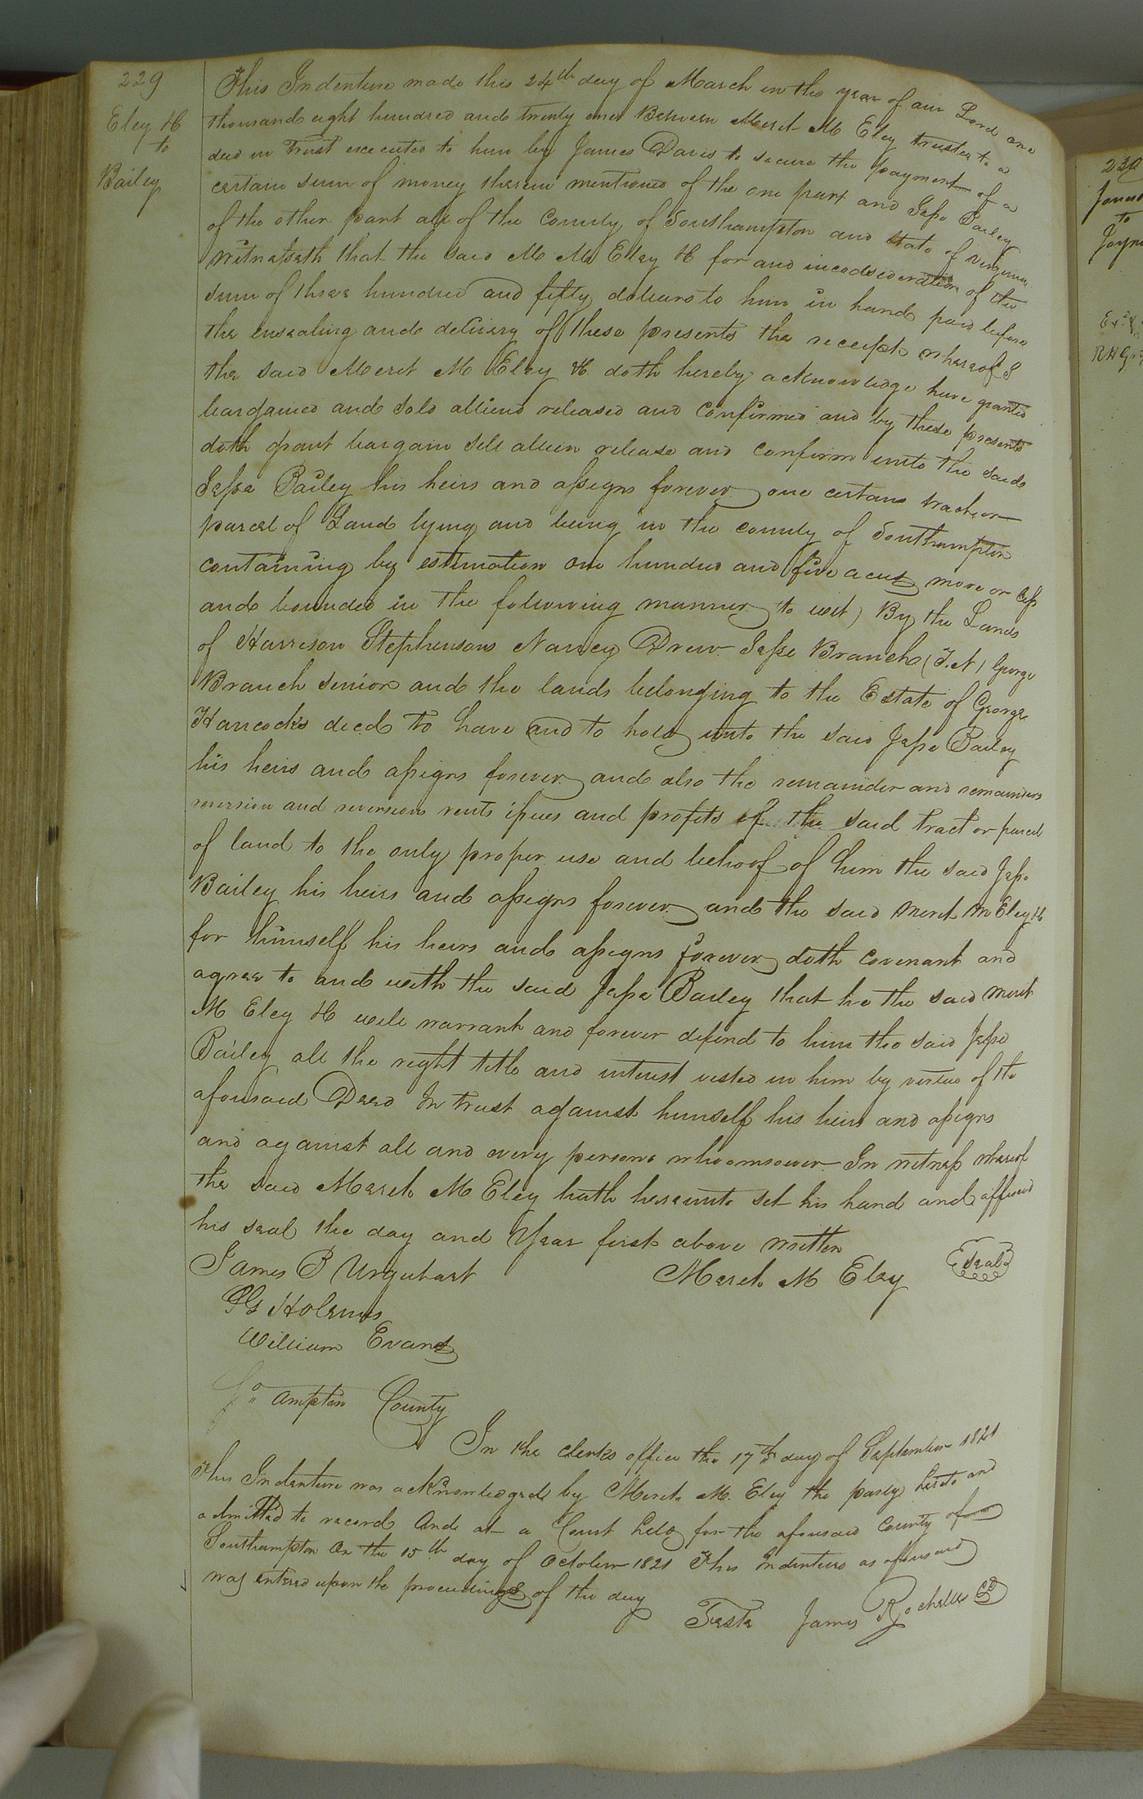 229
Eley tr
to
Bailey
This Indenture made this 24th day of March in the year of our Lord one
thousand eight hundred and twenty one Between Merit M Eley trustee to a
deed in Trust executed to him by James Davis to secure the payment of a
certain sum of money therein mentioned of the one part and Jesse Bailey
of the other part all of the County of Southampton and State of Virginia
witnesseth that the said M M Eley tr for and inconsideration of the
sum of three hundred and fifty dollars to him in hand paid before
the ensealing and delivery of these presents the receipt whereof
the said Merit M Eley tr doth hereby acknowledge have granted
bargained and sold aliend released and confirmed and by these presents
doth grant bargain sell alien release and confirm unto the said
Jesse Bailey his heirs and assigns forever one certain tract or
parcel of Land lying and being in the county of Southampton
containing by estimation one hundred and five acres more or less
and bounded in the following manner (to wit) By the Lands
of Harrison Stephensons Nancy Drew Jesse Branch (T.N) George
Branch senior and the lands belonging to the Estate of George
Hancocks decd to have and to hold unto the said Jesse Bailey
his heirs and assigns forever and also the remainder and remainders
reversion and reversions rents issues and profits of the said tract or parcel
of land to the only proper use and behoof of him the said Jesse
Bailey his heirs and assigns forever and the said Merit M Eley tr
for himself his heirs and assigns forever doth covenant and
agree to and with the said Jesse Bailey that he the said Merit
M Eley tr will warrant and forever defend to him the said Jesse
Bailey all the right title and interest vested in him by virtue of the
aforesaid Deed In trust against himself his heirs and assigns
and against all and every persons whoomsoever In witness whereof
the said Merit M Eley hath hereunto set his hand and affixed
his seal the day and Year first above written
James B Urquhart Merit M Eley Seal
William Evans
So ampton County
In the clerks office the 17th day of September 1821
This Indenture was acknowledged by Merit M. Eley the party hereto and
admitted to record And at a Court held for the aforesaid County of
Southampton On the 15th day of October 1821 This Indenture as aforesaid
was entered upon the proceedings of the day
Teste James Rochelle CC
230
to